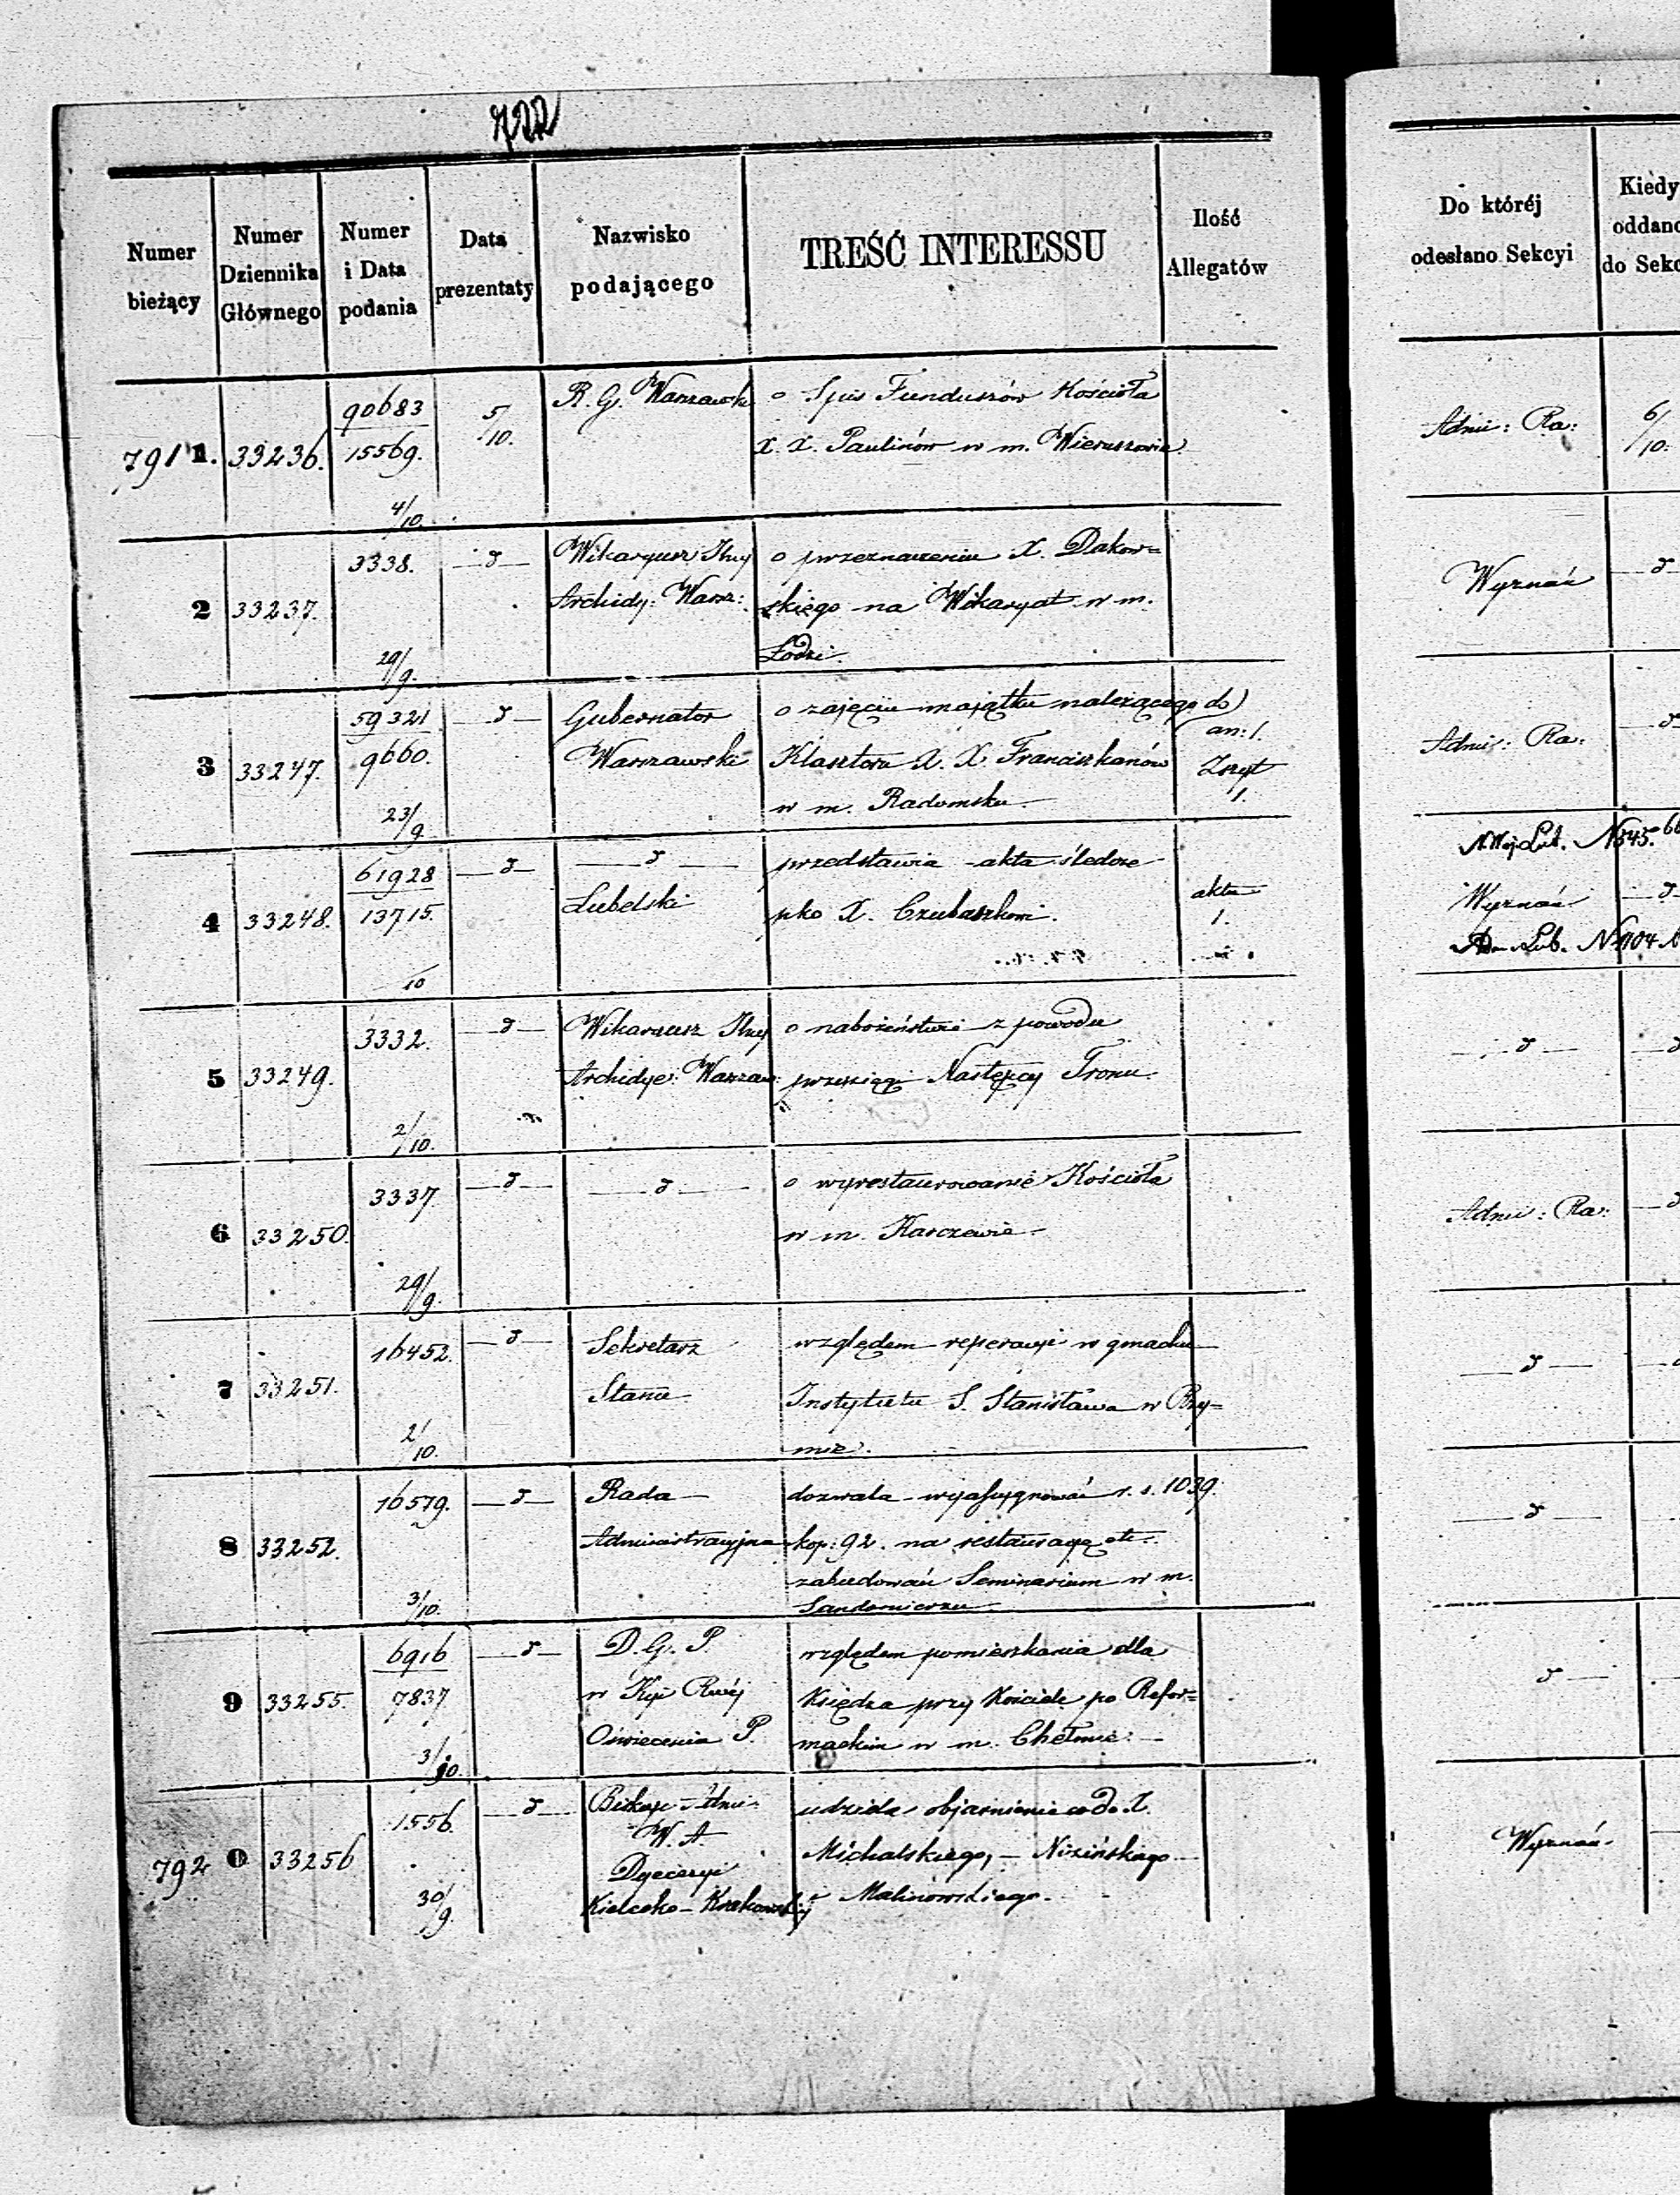 722
Numer bieżący
Numer Dziennika Głównego
Numer i Data podania
Data prezentaty
Nazwisko podającego
TREŚĆ INTERESSU
Ilość Allegatów
Do któréj odesłano Sekcyi
Kiedy oddano do Sekc
7911. 33236. 90683 5/10. R. G. Warszawski o Spis Funduszów Kościoła Adm: Ra: 6/10.
15569. X. X. Paulinów w m. Wieruszowie
4/10.
2 33237. 3338. — d — Wikaryusz Jlny o przeznaczeniu X. Dakow= Wyznań — d
Archidy: Warsz: skiego na Wikaryat w m.
29/9. Łodzi.
3 33247. 59321 — d — Gubernator o zajęciu majątku należącego do an: 1. Adm: Ra: — d
9660. Warszawski Klasztoru X. X. Franciszkanów Zszyt
23/9 w m. Radomsku 1.
Lub. N 545.
4 33248. 61928 — d — — d — przedstawia akta śledcze akta Wyznań — d
13715. Lubelski pko X. 1.
10 Lub. N 1104
5 33249. 3332. — d — Wikaryusz Jlny o nabożeństwie z powodu — d — — d
Archidye: Warszaw: przysięgi Następcy Tronu.
2/10.
6 33250. 3337. — d — — d — o wyrestaurowanie Kościoła Adm: Ra: — d
w m. Karczewie
29/9.
7 33251. 16452. — d — Sekretarz względem reperacyi w gmachu — d —
Stanu Instytutu S. Stanisława w Rzy=
2/10. mie.
8 33252. 16579. — d — Rada dozwala wyassygnować r. s. 1039. — d —
Administracyjna kop: 92. na restauracyę etc.
zabudowań Seminarium w m.
3/10. Sandomierzu
9 33255. 6916 — d — D. G. P. względem pomieszkania dla d —
7837 w Kyi Rwéj Księdza przy Kościele po Refor=
3/10. Oświecenia P. mackim w m. Chełmie.
7920 33256 1556. — d — Biskup Adm: udziela objaśnienie co do X. Wyznań
W. A Michalskiego, — Nizińskiego
Dyecezyi i Malinowskiego.
30/9. Kielecko-Krakowskiéj